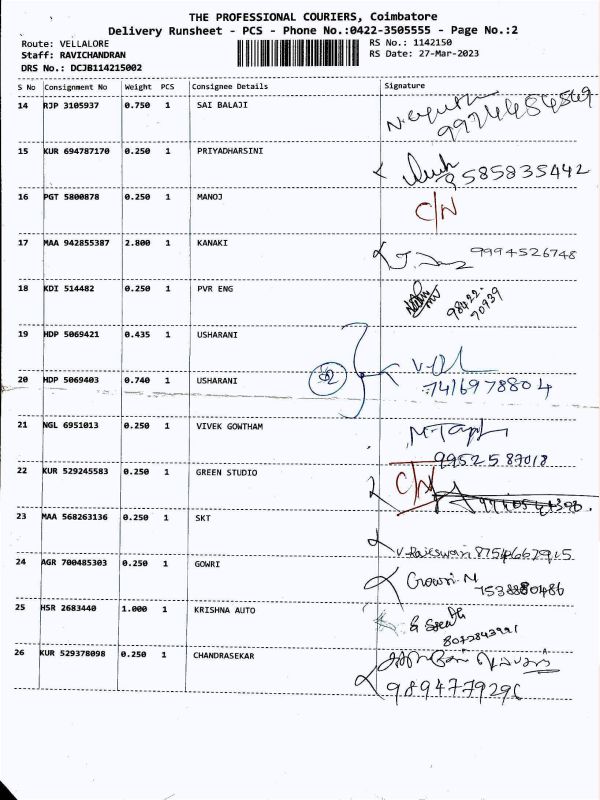 THE PROFESSIONAL COURIERS, Coimbatore
Delivery Runsheet - PCS - Phone No.:0422-3505555 - Page No.:2
Route: VELLALORE
RS No.: 1142150
Staff: RAVICHANDRAN
RS Date: 27-Mar-2023
DRS No.: DCJB114215002
S No Consignment No Weight PCS Consignee Details Signature
14 RJP 3105937 0.750 1 SAI BALAJI
15 KUR 694787170 0.250 1 PRIYADHARSINI
8585835442
16 PGT 5800878 0.250 1 MANOJ C/N
17 MAA 942855387 2.800 1 KANAKI 9994526748
18 KDI 514482 0.250 1 PVR ENG
98422-
70939
19 HDP 5069421 0.435 1 USHARANI
20 HDP 5069403 0.740 1 USHARANI 7416978804
21 NGL 6951013 0.250 1 VIVEK GOWTHAM
9952587018
22 KUR 529245583 0.250 1 GREEN STUDIO C/N
23 MAA 568263136 0.250 1 SKT
V. Rajeswari
24 AGR 700485303 0.250 1 GOWRI
Gowri. M
25 HSR 2683440 1.000 1 KRISHNA AUTO
26 KUR 529378098 0.250 1 CHANDRASEKAR
9894779296